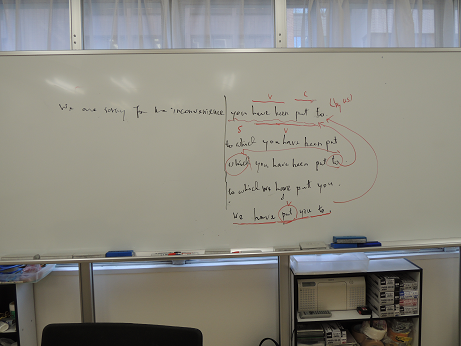 V C (by us)
We are sorry for the inconvenience you have been put to
S V
to which you have been put
which you have been put to
to which we have put you.
V
We have put you to